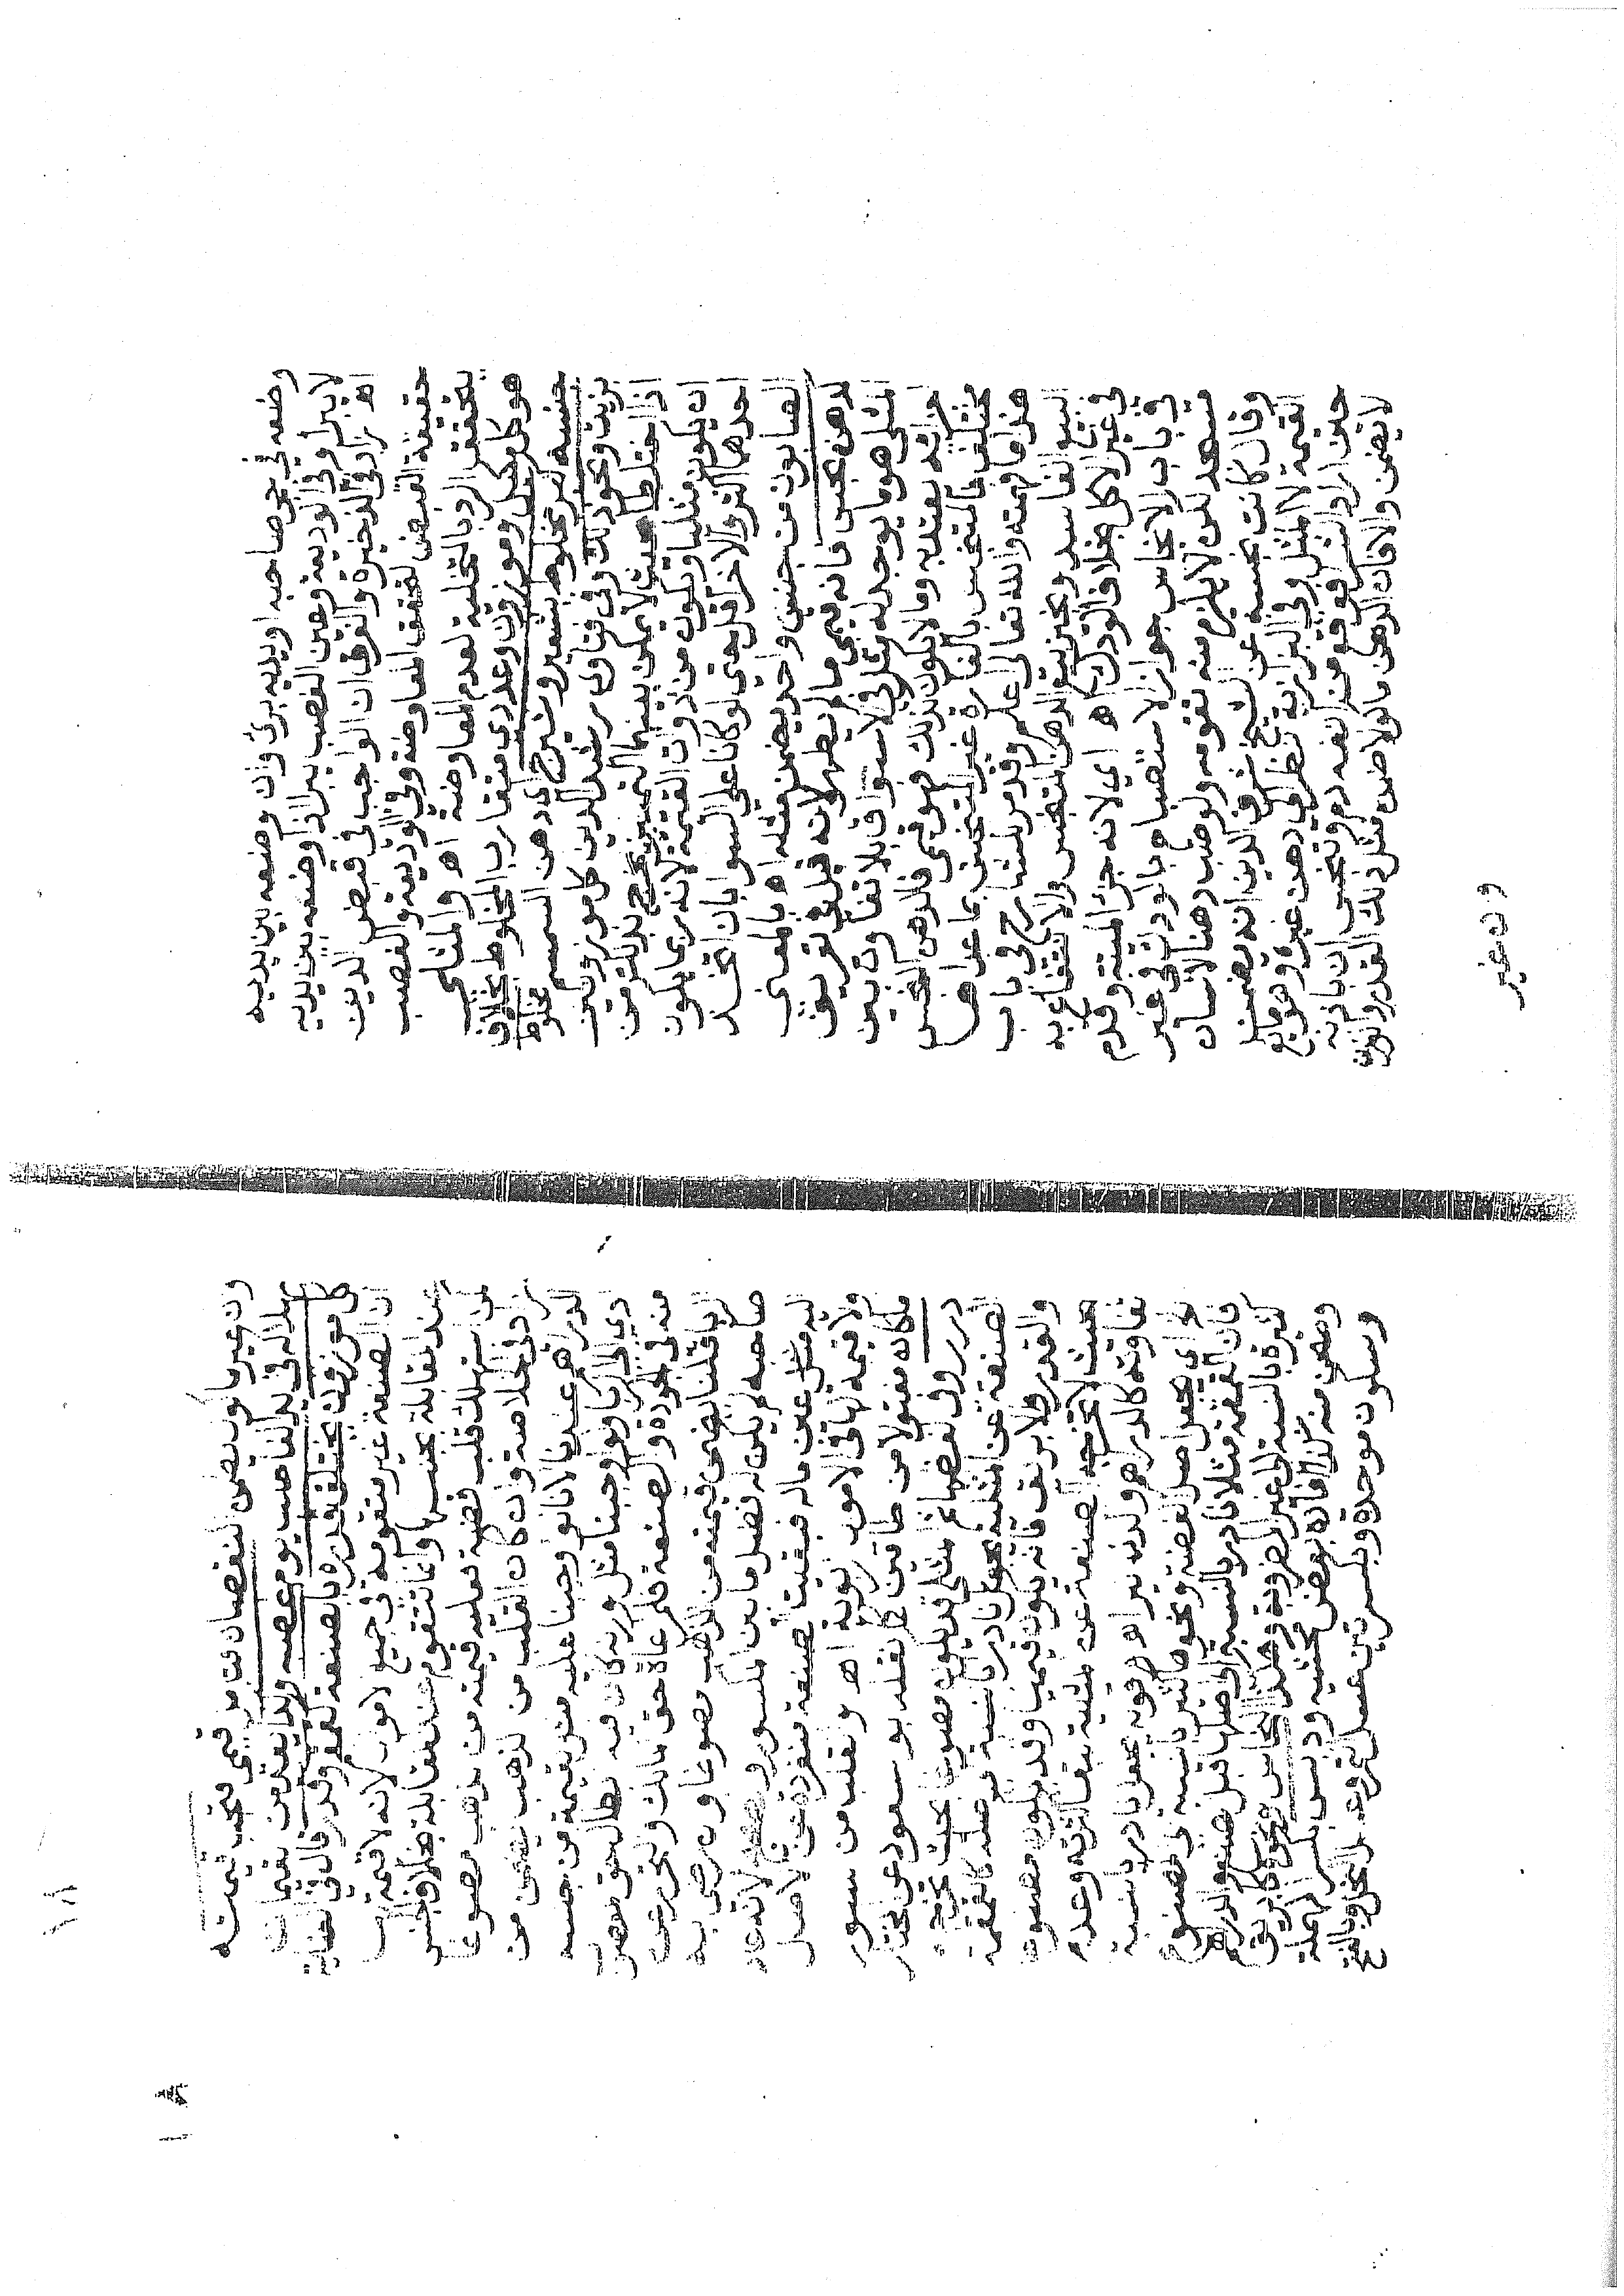 وضعه في حجر صاحبه او يديه برئ وان وضعه بين يديه
لا يبرأ وفي الوديعة وعين الغصب يبرأ اذا وضعه بين يديه
اهـ زاد في الذخيرة والفرق ان الواجب في قبض الدين
حقيقة القبض لتحقق المعاوضة وفي الوديعة والغصب
يتحقق الرد بالتخلية لعدم المعاوضة اهـ والمثلي
هو كل مكيل وموزون وعددي متقارب المخلوط بخلاف
جنسه كبر مخلوط بشعير وشيرج اي دهن السمسم مخلوط
بزيت ونحو ذلك وفي فتاوى رشيد الدين كل موزونين
اذا اختلطا بحيث لا يمكن بينهما التمييز يخرج بذلك من
ان يكون مثليا ويكون من ذوات القيمة لانه ربما يكون
احدهما اكثر والاخر اقل حتى لو كانا على السواء بان اتخذ
الصابون من جنس واحد يضمن مثله اهـ بالمعنى
لدهن نجس فانه قيمي ما لم يطهر لانه قيل في تعريف
المثلي هو ما يوجد له مثل في الاسواق بلا تفاوت بين
اجزائه يعتد به وما لا يكون كذلك فهو قيمي فالدهن النجس
مختلف فالمتنجس بالفارة غير المتنجس بما عداها
هذا ما فهمته والله تعالى اعلم وقد مر للشارح في باب
البيع الفاسد ونجيز بيع الدهن المتنجس والانتفاع به
في غير الاكل بخلاف الودك اهـ اي لانه جزء الميتة وقدم
في باب الانجاس جواز الاستصباح بالودك في غير
مسجد لكن لا يلزم منه تقومه ولو صب دهنا لانسان
وقال كانت نجسه عن الشيخ شرف الدين انه يضمن
القيمة لا المثل وفي البزازية نظر في دهن غيره وهو مائع
حين اراد الشراء فوقع من انفه دم وتنجس ان باذنه
لا يضمن والا فان الدهن ماكولا ضمن مثل ذلك القدر والوزن
ون غير
ون غير ما كول يضمن النقصان قيمي فتجب قيمته
بدله في يد الغاصب يوم غصبه
كل موزون يختلف قدره بالصنعة كقمقم وقدر قال في العناية
ان الصنعة غير متقومة في جميع الاموال لانه لا قيمة لها
عند المقابلة بجنسها وانما تتقوم عند مقابلة بخلاف الجنس
فمن استهلك قلب فضة فعليه قيمته من الذهب مصوغا
زاد في الخلاصة وان كان القلب من الذهب يضمن من
الدراهم عندنا لانا لو اوجبنا عليه مثل القيمة من جنسه
ادى الى الربا ولو اوجبنا مثل وزنه كان فيه ابطال حق المغصوب
منه في الجودة والصنعة فلمراعاة حق المالك والتحرز عن
الربا قلنا يضمن قيمته من الذهب مصوغا وان رضي به
صاحبه لم يكن له فضل ما بين المكسور والصحيح لانه عاد
اليه مثل عين ماله فبقيت الصنعة منفردة عن الاصل
ولا قيمة لها في الاموال الربوية اهـ والقلب من سوار
ما كان مفتولا من طاقين كما نقله ابو السعود عن المختار
درر وفي بعضها ثم المثلي قد يكون مصنوعا بحيث تخرجه
الصنعة عن المثلية بجعل نادرا بالنسبة لاصله كالقمقمة
والقدر والابريق فانه يكون قيميا وقد يكون مصنوعا
بحيث لا تخرجه الصنعة عن المثلية لبقاء كثرته وعدم
تفاوته كالدراهم والدنانير اهـ وقوله بجعل نادرا بالنسبة
اي بجعل اصل الفضة ونحوها كثير بالنسبة الى المصنوع
فان القمقمة مثلا نادر بالنسبة الى اصلها قبل صنعه الدراهم
كثيرة بالنسبة الى غير المضروبة وهذا النحاس ونحو كابريق
ومعجن منه كذا افاده بعض محشيه ودبس بكسر المهملة
وسكون موحدة وبكسرتين عسل التمر وعسل النحل وبالفتح